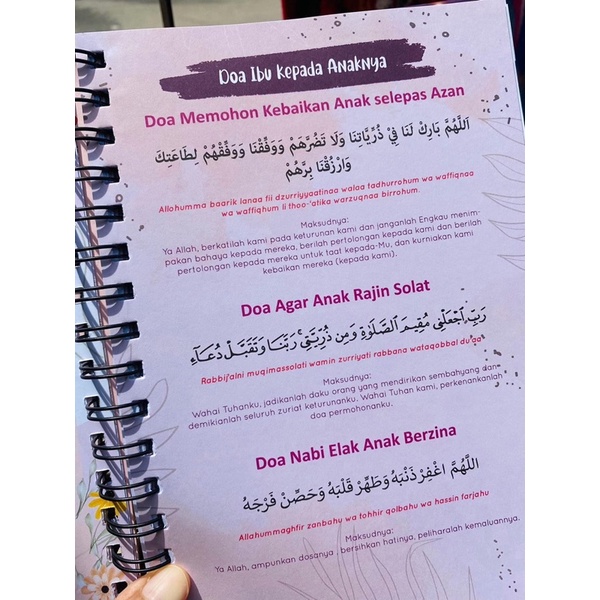 Doa Ibu kepada Anaknya
Doa Memohon Kebaikan Anak selepas Azan
اَللّٰهُمَّ بَارِكْ لَنَا فِيْ ذُرِّيَّاتِنَا وَلَا تَضُرَّهُمْ وَوَفِّقْنَا وَوَفِّقْهُمْ لِطَاعَتِكَ
وَارْزُقْنَا بِرَّهُمْ
Allohumma baarik lanaa fii dzurriyyaatinaa walaa tadhurrohum wa waffiqnaa
wa waffiqhum li thoo-'atika warzuqnaa birrohum.
Maksudnya:
Ya Allah, berkatilah kami pada keturunan kami dan janganlah Engkau menim-
pakan bahaya kepada mereka, berilah pertolongan kepada kami dan berilah
pertolongan kepada mereka untuk taat kepada-Mu, dan kurniakan kami
kebaikan mereka (kepada kami).
Doa Agar Anak Rajin Solat
رَبِّ اجْعَلْنِي مُقِيمَ الصَّلَوٰةِ وَمِن ذُرِّيَّتِي ۚ رَبَّنَا وَتَقَبَّلْ دُعَآءِ
Rabbij'alni muqimassolati wamin zurriyati rabbana wataqobbal du'aa
Maksudnya:
Wahai Tuhanku, jadikanlah daku orang yang mendirikan sembahyang dan
demikianlah seluruh zuriat keturunanku. Wahai Tuhan kami, perkenankanlah
doa permohonanku.
Doa Nabi Elak Anak Berzina
اللَّهُمَّ اغْفِرْ ذَنْبَهُ وَطَهِّرْ قَلْبَهُ وَحَصِّنْ فَرْجَهُ
Allahummaghfir zanbahu wa tohhir qolbahu wa hassin farjahu
Maksudnya:
Ya Allah, ampunkan dosanya , bersihkan hatinya, peliharalah kemaluannya.